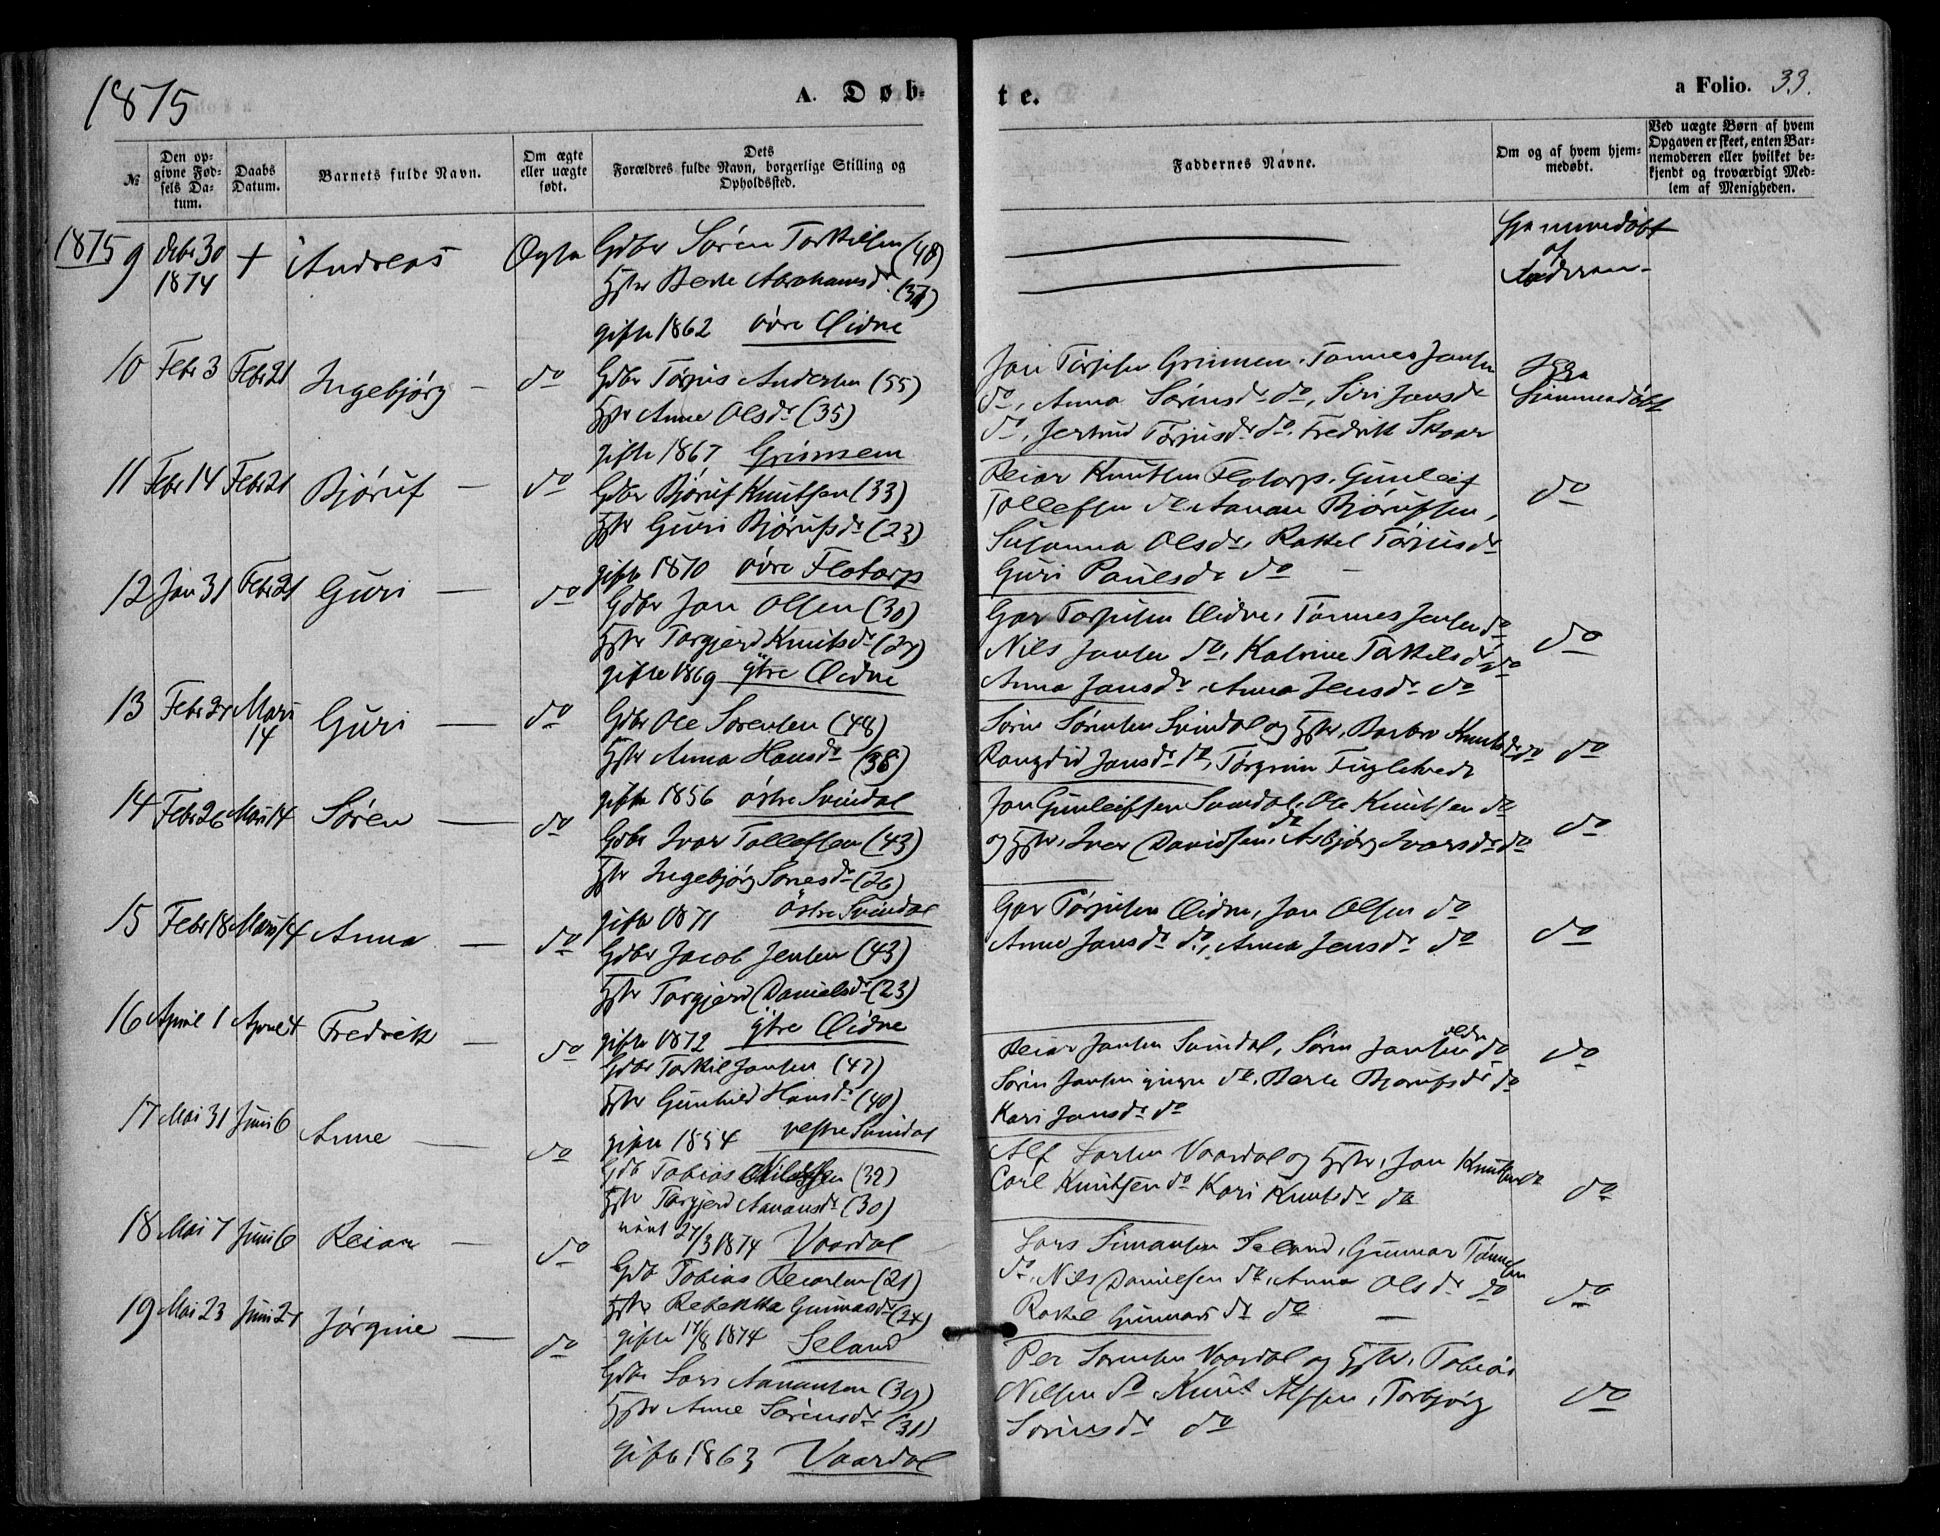 1875
A. Døb-
te.
a Folio. 33.
№
Den op-
givne Fød-
sels Da-
tum.
Daabs
Datum.
Barnets fulde Navn.
Om ægte
eller uægte
født.
Dets
Forældres fulde Navn, borgerlige Stilling og
Opholdssted.
Faddernes Navne.
Om og af hvem hjem-
medøbt.
Ved uægte Børn af hvem
Opgaven er skeet, enten Bar-
nemoderen eller hvilket be-
kjendt og troværdigt Med-
lem af Menigheden.
1875 9 Debr 30 1874 + Andreas Ægte
Gdbr Søren Torkilsen (48)
Hstr Berte Abrahamsdr
gifte 1862 øvre Eidne
Hjemmedøbt
af
Faderen
10 Febr 3 Febr 21 Ingebjørg - do
Gdbr Torjus Andersen (55)
Hstr Anne Olsdr (35)
gifte 1867 Grimsem
Jon Torjusen Grimsem, Tønnes Jonsen
do, Anna Sørensdr do, Siri Jonsdr
do, Jertrud Torjusdr do, Fredrik Skaar
Ikke
hjemmedøbt
11 Febr 14 Febr 21 Bjøruf - do
Gdbr Bjøruf Knutsen (33)
Hstr Guri Bjørufsdr (23)
gifte 1870 øvre Flotorp
Reiar Knutsen Flotorp, Gunleif
Tollefsen do, Aanan Bjørufsen,
Susanna Olsdr, Rakel Torjusdr
Guri Paulsdr do -
do
12 Jan 31 Febr 21 Guri - do
Gdbr Jon Olsen (30)
Hstr Torgjerd Knutsdr (27)
gifte 1869 ytre Eidne
Gar Torjusen Eidne, Tønnes Jensen do
Nils Jonsen do, Katrine Takkelsdr do
Anna Jonsdr, Anna Jensdr do
do
13 Febr 27 Mars 14 Guri - do
Gdbr Ole Sørensen (48)
Hstr Anna Hansdr (38)
gifte 1856 østre Svindal
Søren Sørensen Svindal og Hstr, Barbro Knutsdr do
Rangdid Jonsdr do, Torgrim Fuglestvedt
do
14 Febr 26 Mars 14 Søren - do
Gdbr Ivar Tollefsen (43)
Hstr Ingebjørg Sønesdr (26)
gifte 1871 østre Svindal
Jon Gunleifsen Svindal, Ole Knutsen do
og Hstr, Iver Davidsen do, Asbjørg Ivarsdr do
do
15 Febr 18 Mars 14 Anna - do
Gdbr Jacob Jensen (43)
Hstr Torgjerd Danielsdr (23)
gifte 1872 ytre Eidne
Gar Torjusen Eidne, Jon Olsen do
Anne Jonsdr do, Anna Jensdr do
do
16 April 1 April 4 Fredrik - do
Gdbr Torkil Jonsen (47)
Hstr Gunhild Hansdr (40)
gifte 1854 vestre Svindal
Reiar Jonsen Svindal, Søren Jonsen ældre do
Søren Jonsen yngre do, Berte Bjørufsdr do
Kari Jonsdr do
do
17 Mai 31 Juni 6 Anne - do
Gdb Tobias Nilsen (32)
Hstr Torgjerd Aanansdr (30)
27/3 1874 Vaardal
Alf Larsen Vaardal og Hstr, Jon Knutsen do
Carl Knutsen do Kari Knutsdr do
do
18 Mai 7 Juni 6 Reiar - do
Gdb Tobias Reiarsen (21)
Hstr Rebekka Gunnarsdr (24)
gifte 17/8 1874 Seland
Lars Simonsen Seland, Gunnar Tønnesen
do, Nils Danielsen do, Anna Olsdr do
Rakel Gunnarsdr do -
do
19 Mai 23 Juni 21 Jørgine - do
Gdb Lars Aanansen (39)
Hstr Anne Sørensdr (31)
gifte 1863 Vaardal
Per Sørensen Vaardal og Hstr, Tobias
Nilsen do Knut Alfsen, Torbjørg
Sørensdr do
do